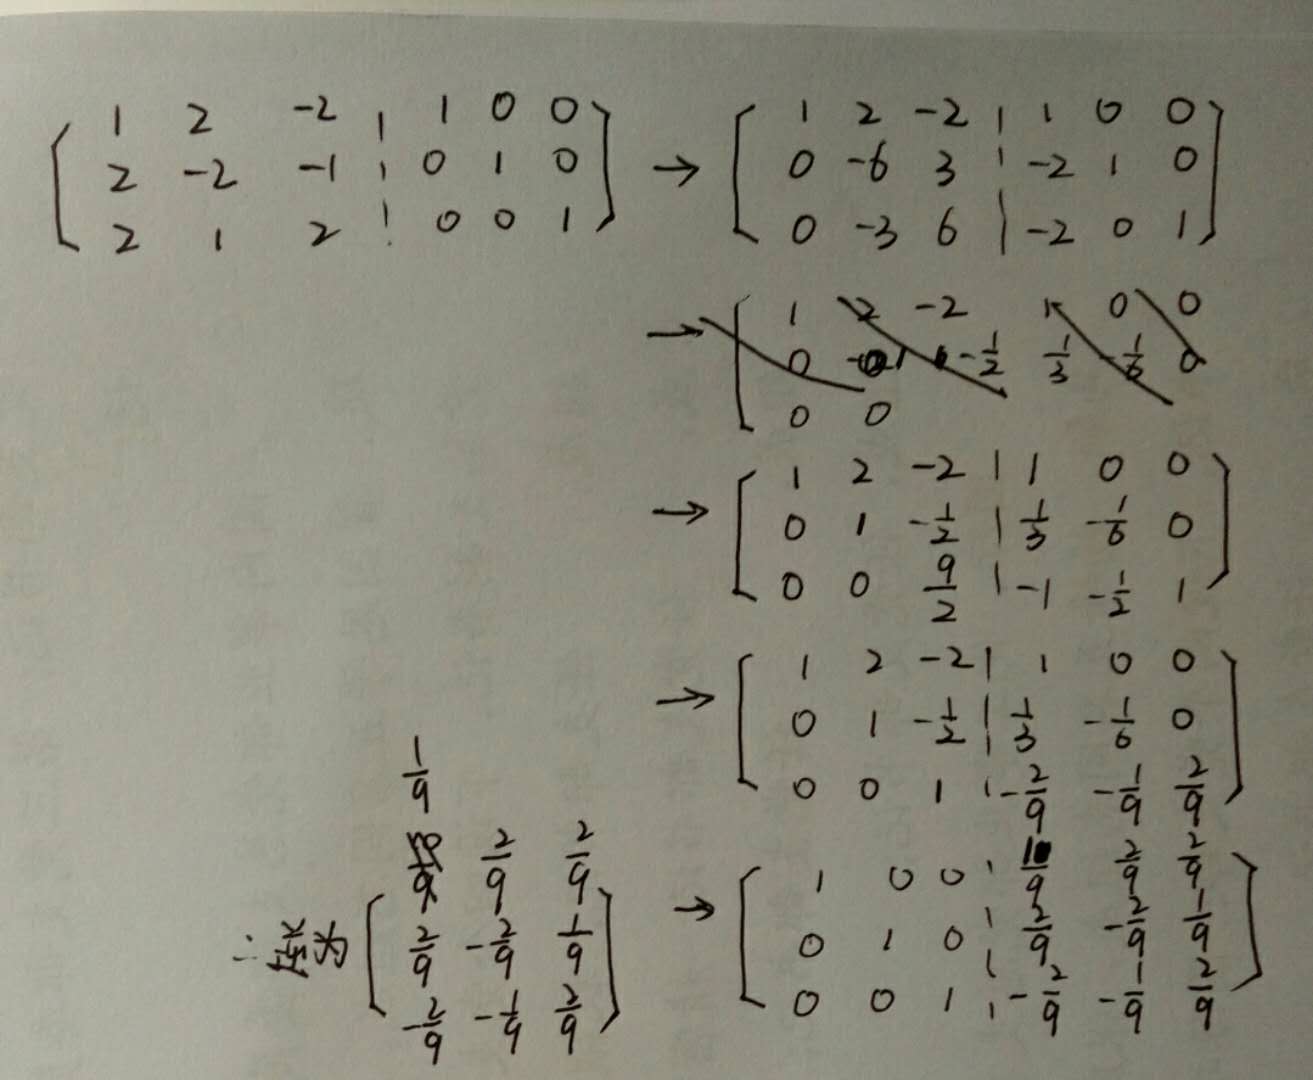 1 2 -2 | 1 0 0 → 1 2 -2 | 1 0 0
2 -2 -1 | 0 1 0 0 -6 3 | -2 1 0
2 1 2 | 0 0 1 0 -3 6 | -2 0 1
→ 1 2 -2 1 0 0
0 1 -1/2 1/3 -1/6 0
0 0
→ 1 2 -2 | 1 0 0
0 1 -1/2 | 1/3 -1/6 0
0 0 9/2 | -1 -1/2 1
→ 1 2 -2 | 1 0 0
0 1 -1/2 | 1/3 -1/6 0
0 0 1 | -2/9 -1/9 2/9
→ 1 0 0 | 1/9 2/9 2/9
0 1 0 | 2/9 -2/9 1/9
0 0 1 | -2/9 -1/9 2/9
∴ 为
1/9 2/9 2/9
2/9 -2/9 1/9
-2/9 -1/9 2/9